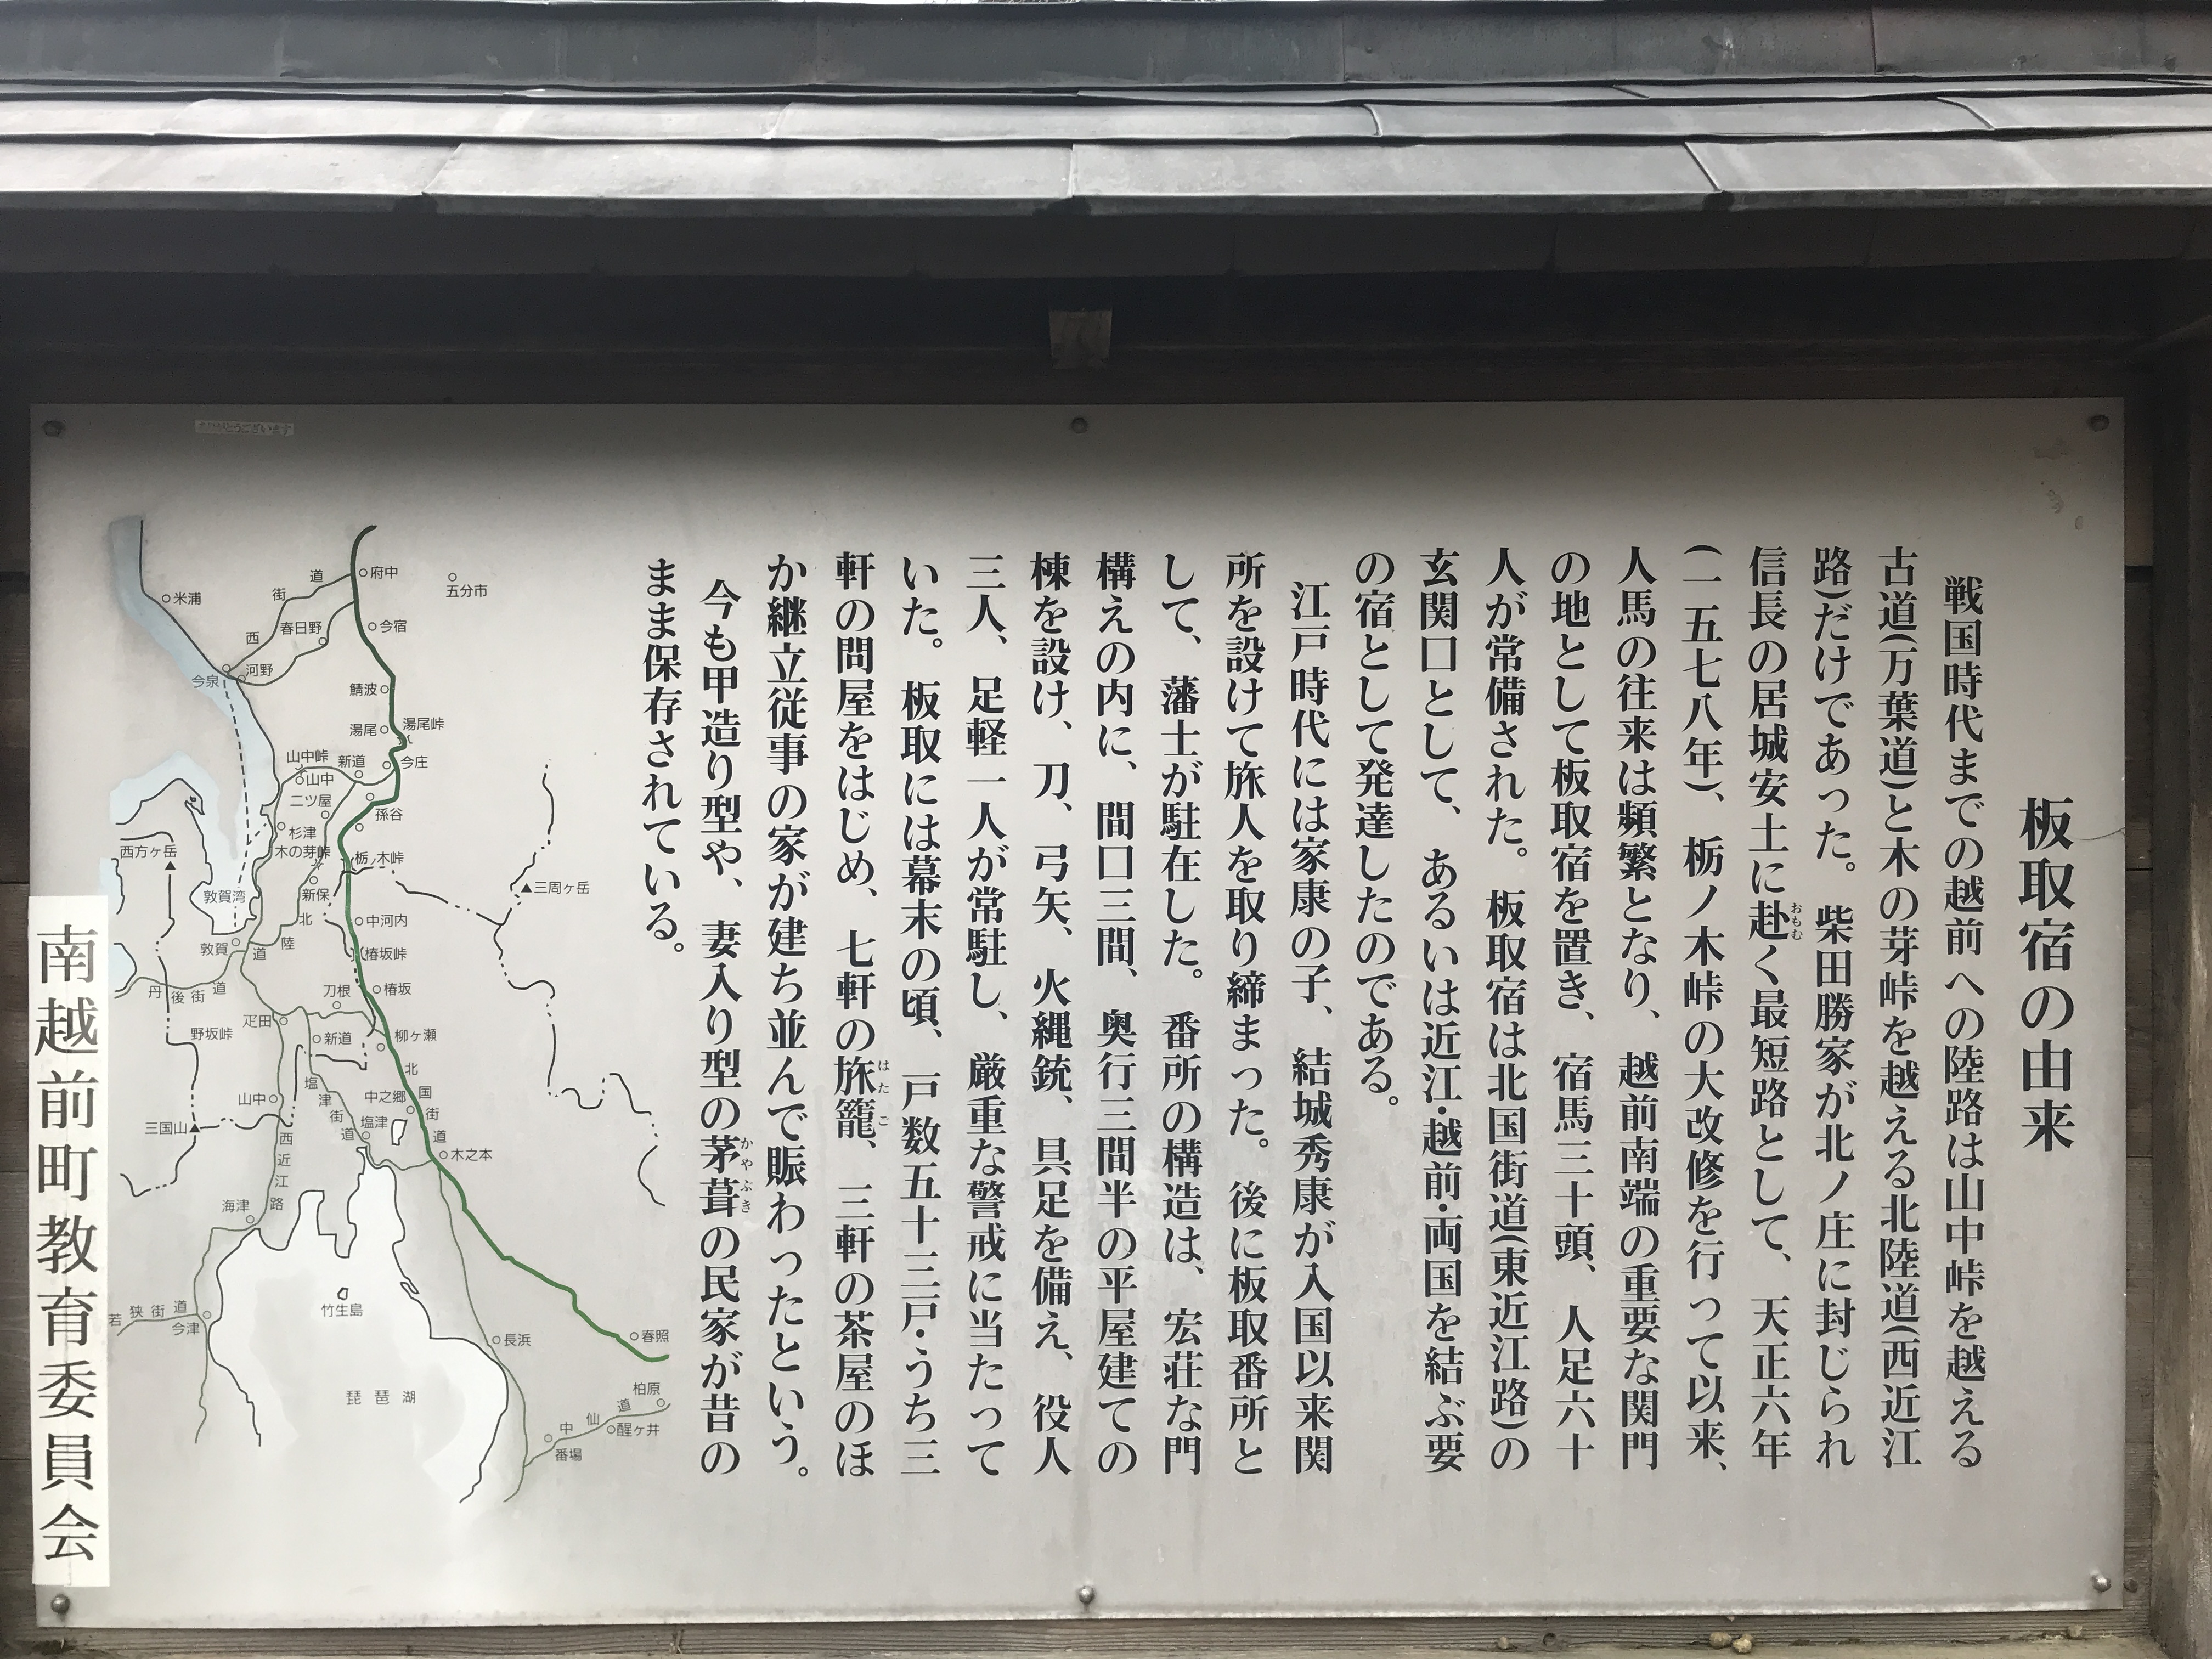 板取宿の由来
戦国時代までの越前への陸路は山中峠を越える
古道(万葉道)と木の芽峠を越える北陸道(西近江
路)だけであった。柴田勝家が北ノ庄に封じられ
信長の居城安土に赴く最短路として、天正六年
おもむ
(一五七八年)、栃ノ木峠の大改修を行って以来、
人馬の往来は頻繁となり、越前南端の重要な関門
の地として板取宿を置き、宿馬三十頭、人足六十
人が常備された。板取宿は北国街道(東近江路)の
玄関口として、あるいは近江・越前・両国を結ぶ要
の宿として発達したのである。
江戸時代には家康の子、結城秀康が入国以来関
所を設けて旅人を取り締まった。後に板取番所と
して、藩士が駐在した。番所の構造は、宏荘な門
構えの内に、間口三間、奥行三間半の平屋建ての
棟を設け、刀、弓矢、火縄銃、具足を備え、役人
三人、足軽一人が常駐し、厳重な警戒に当たって
いた。板取には幕末の頃、戸数五十三戸・うち三
軒の問屋をはじめ、七軒の旅籠、三軒の茶屋のほ
はたご
か継立従事の家が建ち並んで賑わったという。
今も甲造り型や、妻入り型の茅葺の民家が昔の
かやぶき
まま保存されている。
府中
五分市
米浦
西街道
春日野
今宿
河野
今泉
鯖波
湯尾
湯尾峠
山中峠
山中
新道
今庄
二ツ屋
孫谷
杉津
木の芽峠
栃ノ木峠
西方ヶ岳
三周ヶ岳
敦賀湾
新保
北陸道
中河内
敦賀
椿坂峠
丹後街道
刀根
椿坂
疋田
野坂峠
新道
柳ヶ瀬
北国街道
塩津街道
山中
中之郷
三国山
塩津
西近江路
木之本
海津
竹生島
若狭街道
今津
長浜
春照
琵琶湖
柏原
中仙道
醒ヶ井
番場
南越前町教育委員会